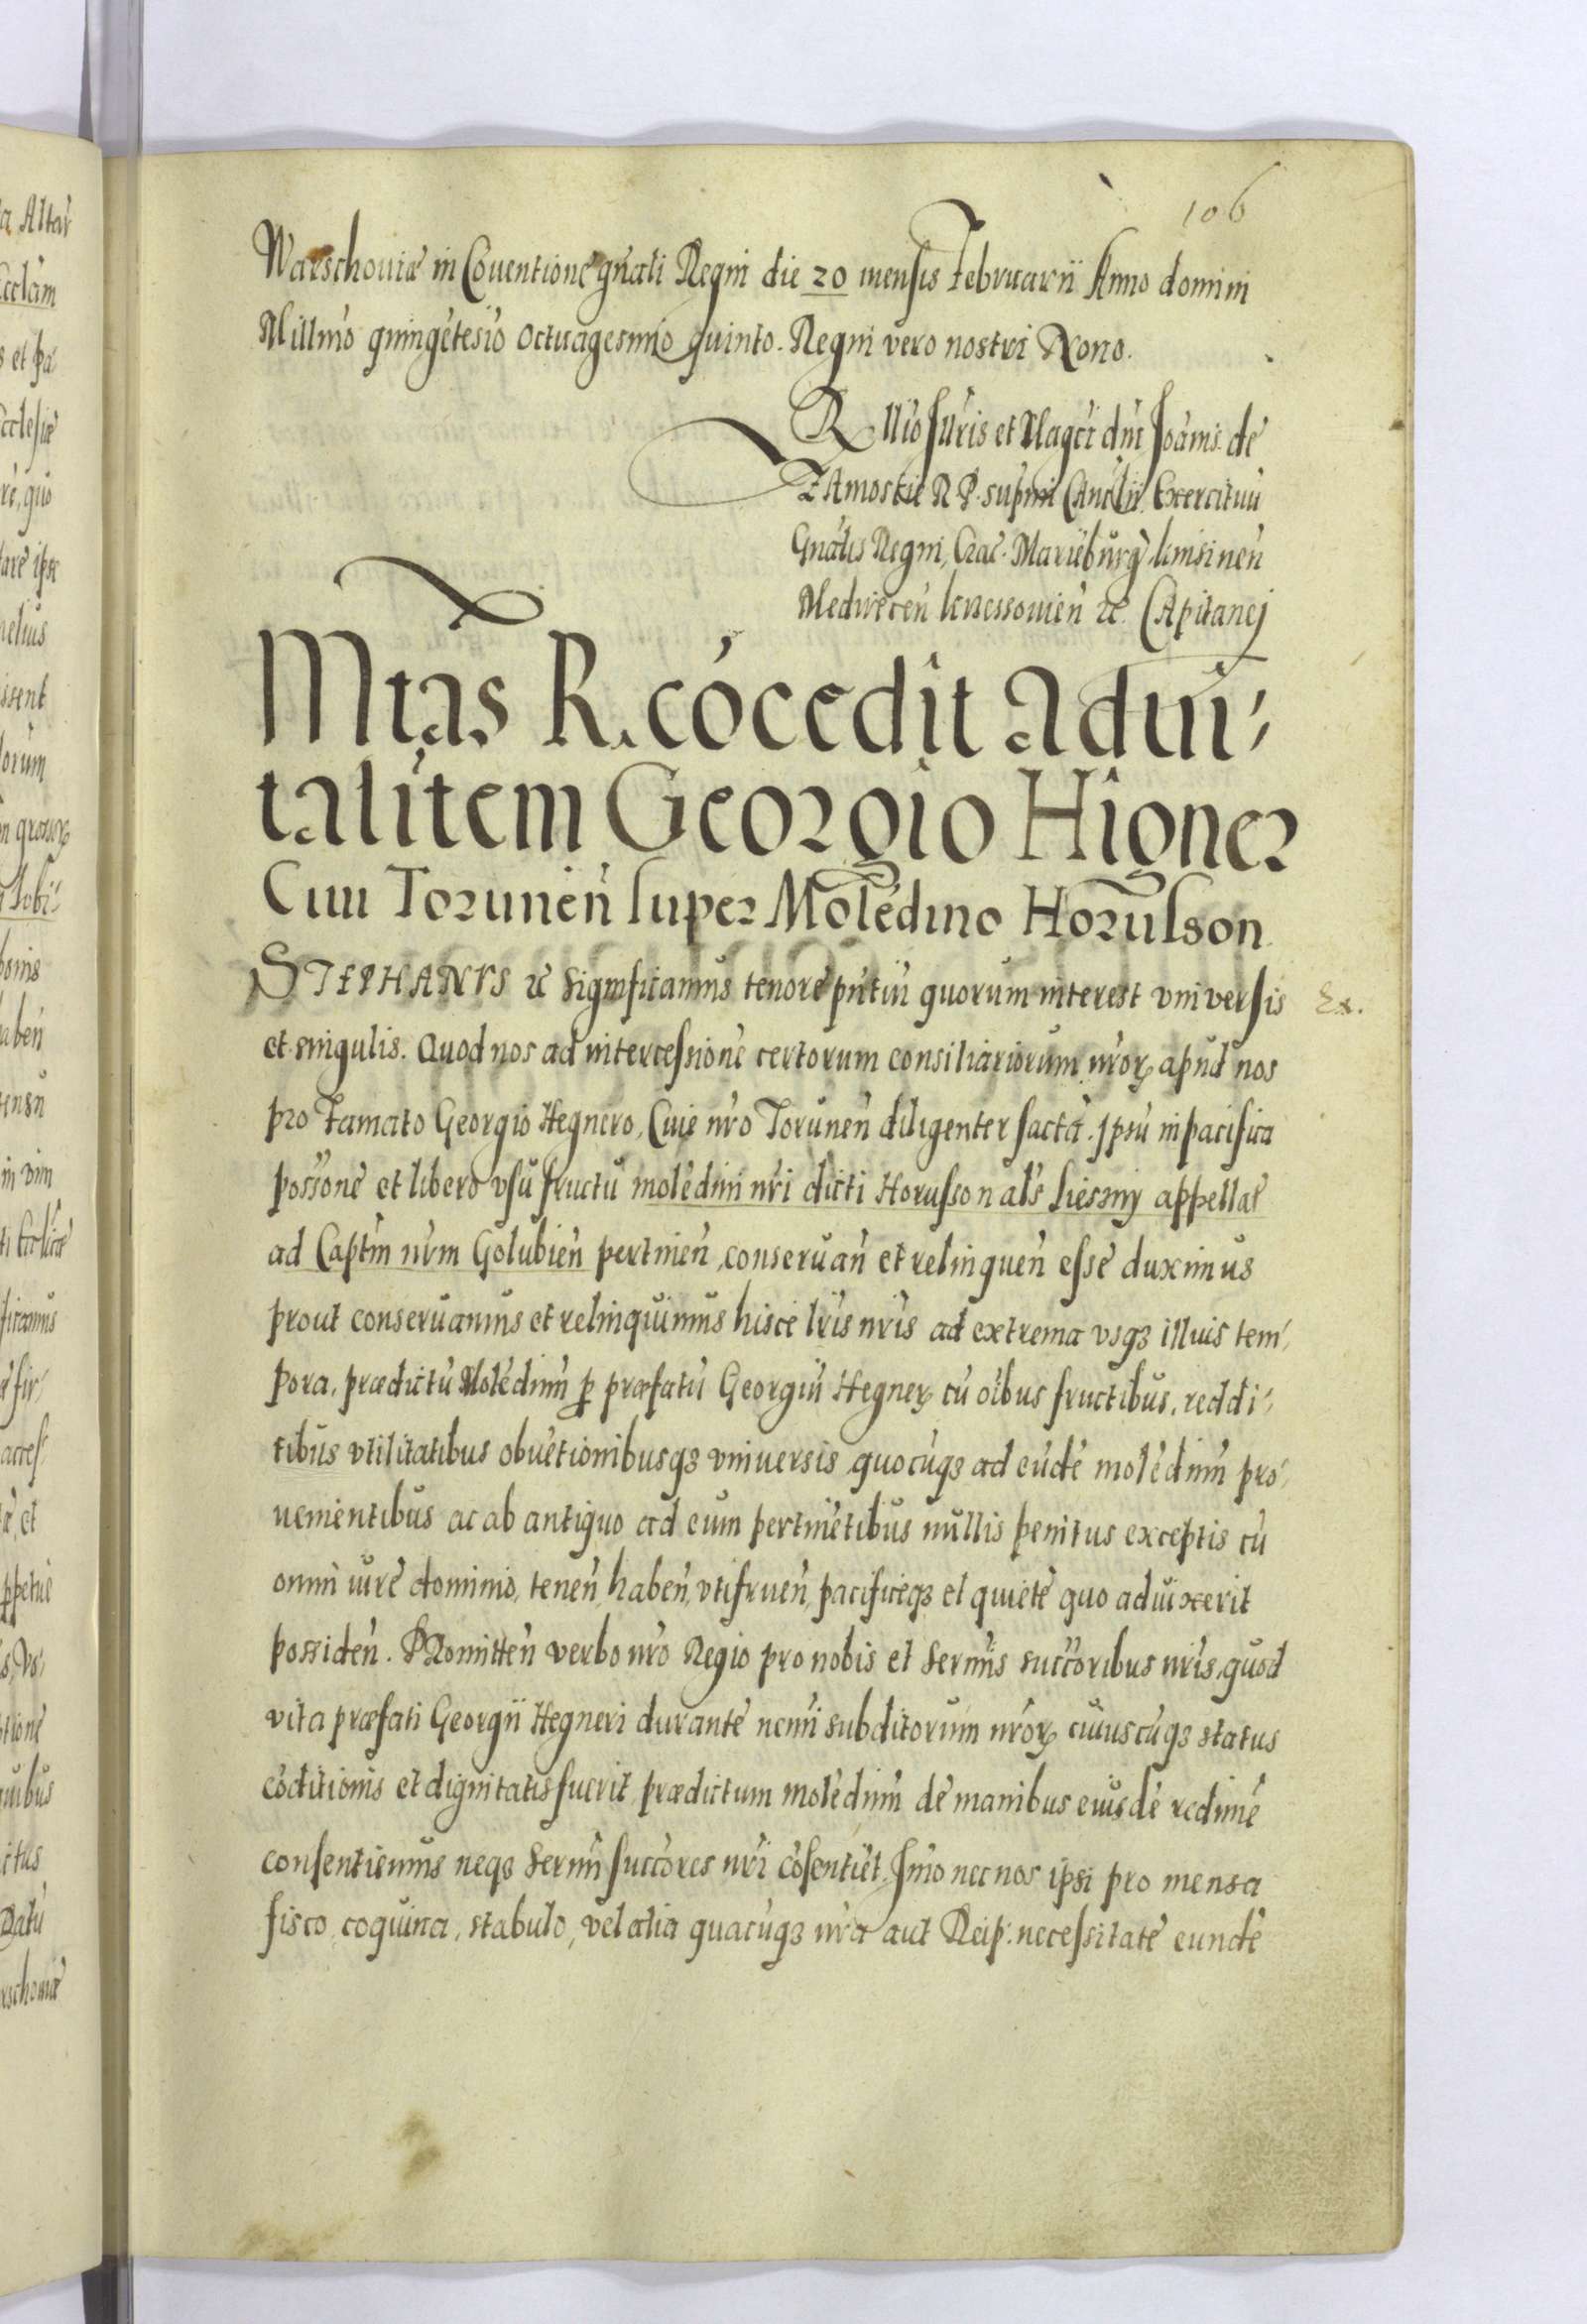 106
Warschouiæ in Cōuentione gn̄ali Regni die 20 mensis Februarii Anno domini
Millm̄o quingētesīo Octuagesimo quinto. Regni vero nostri Nono.
R̄llīo Illūris et Magc̄i dn̄i Joān̄is de
ZAmoscie R P. supm̄i Cancl̄ii Exercituū
Gnāl̄is Regni, Crac̄. Mariēbūrḡ knisinen̄
Medirecen̄ krzessouien̄ ꝛc̄. CApitanej
Mtas R. cōcedit ad vi-
talitem Georgio Higner
Ciui Torunen̄ super Molēdino Horūlson
STEPHANVS ꝛc̄ Significamus tenore pn̄tiū quorum interest vniversis
Ex.
et singulis. Quod nos ad intercessionē certorum consiliariorum nr̄oꝝ apud nos
pro Famato Georgio Hegnero, Ciue nr̄o Torunen̄ diligenter factā. Ipsū in pacifica
possōne et libero vsu fructu molēdini nr̄i dicti Horusson al̄s Lieszny appellat̄
ad Captm̄ nr̄m Golubien̄ pertinen̄, conseruan̄ et relinquen̄ esse duximus
prout conseruamus et relinquimus hisce lr̄is nr̄is ad extrema vsqꝫ illius tem-
pora, prædictū Molēdinū ꝑ præfatū Georgiū Hegneꝝ cū oībus fructibus, reddi-
tibus vtilitatibus obuētionibusqꝫ vniuersis quocūqꝫ ad eūdē molēdinū pro-
uenientibus ac ab antiquo ad eum pertinētibus nullis penitus exceptis cū
omni iure dominio, tenen̄, haben̄, vtifruen̄, pacificeqꝫ et quiete quo aduixerit
possiden̄. PRomitten̄ verbo nr̄o Regio pro nobis et Sermīs succōribus nr̄is, quod
vita præfati Georgii Hegneri durante nemī subditorum nr̄oꝝ cuiuscūqꝫ status
cōditionis et dignitatis fuerit, prædictum molēdinū de manibus eiusdē redimē
consentiemus neqꝫ Serm̄i succōres nr̄i cōsentiēt. Jmo nec nos ipsi pro mensa
fisco, coquina, stabulo, vel alia quacūqꝫ nr̄a aut Reip: necessitate eundē